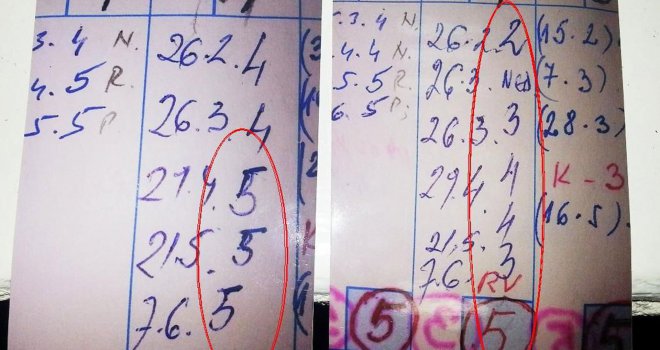 3.4 N.
4.5 R.
5.5 P
26.2.4
26.3.4
27.4.5
21.5.5
7.6.5
.3.4 N.
.4.4 N.
5.5 R.
6.5 P.
26.2.2 (15.2)
26.3. Ned (7.3)
26.3.3 (28.3)
29.4.4 K-3
21.5.4 (16.5).
7.6.3
RV
5 5